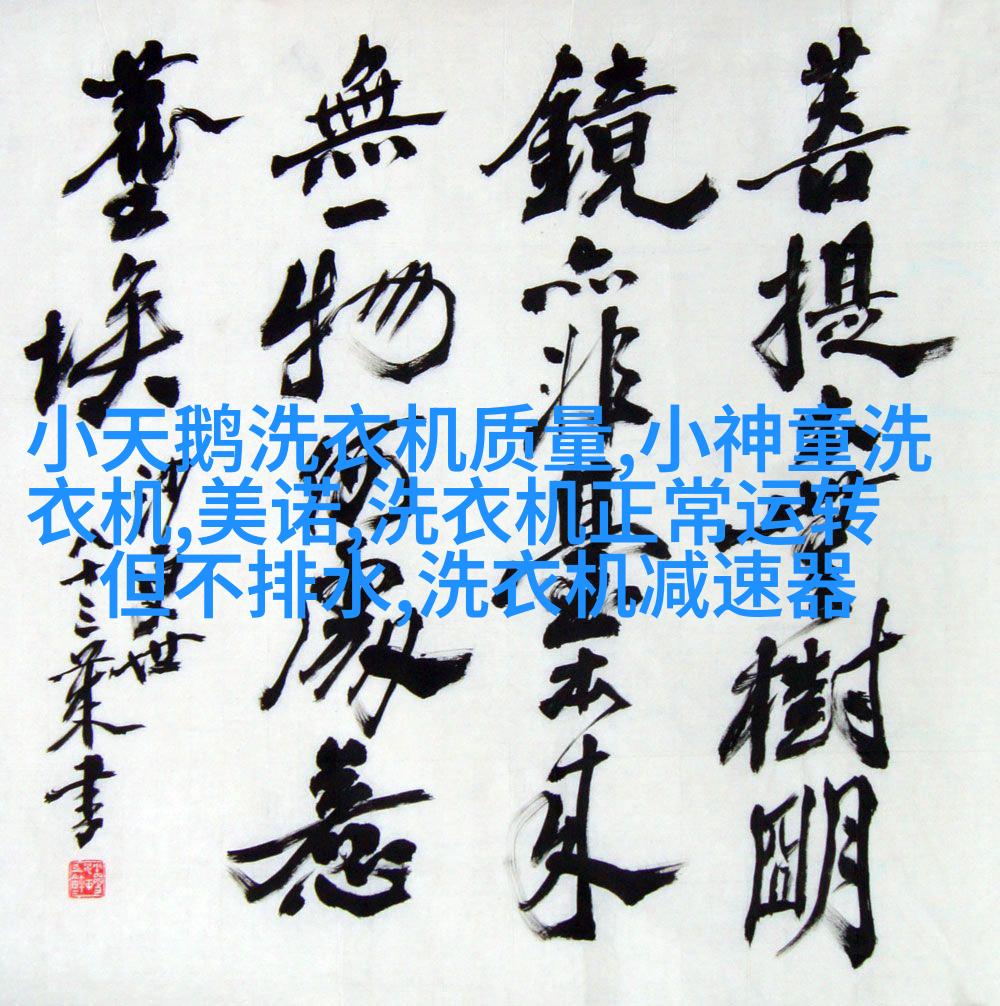 小天鹅洗衣机质量,小神童洗
衣机,美诺,洗衣机正常运转
但不排水,洗衣机减速器
菩提本無樹明
鏡亦非臺本来
無一物何處惹
塵埃
八十三 書